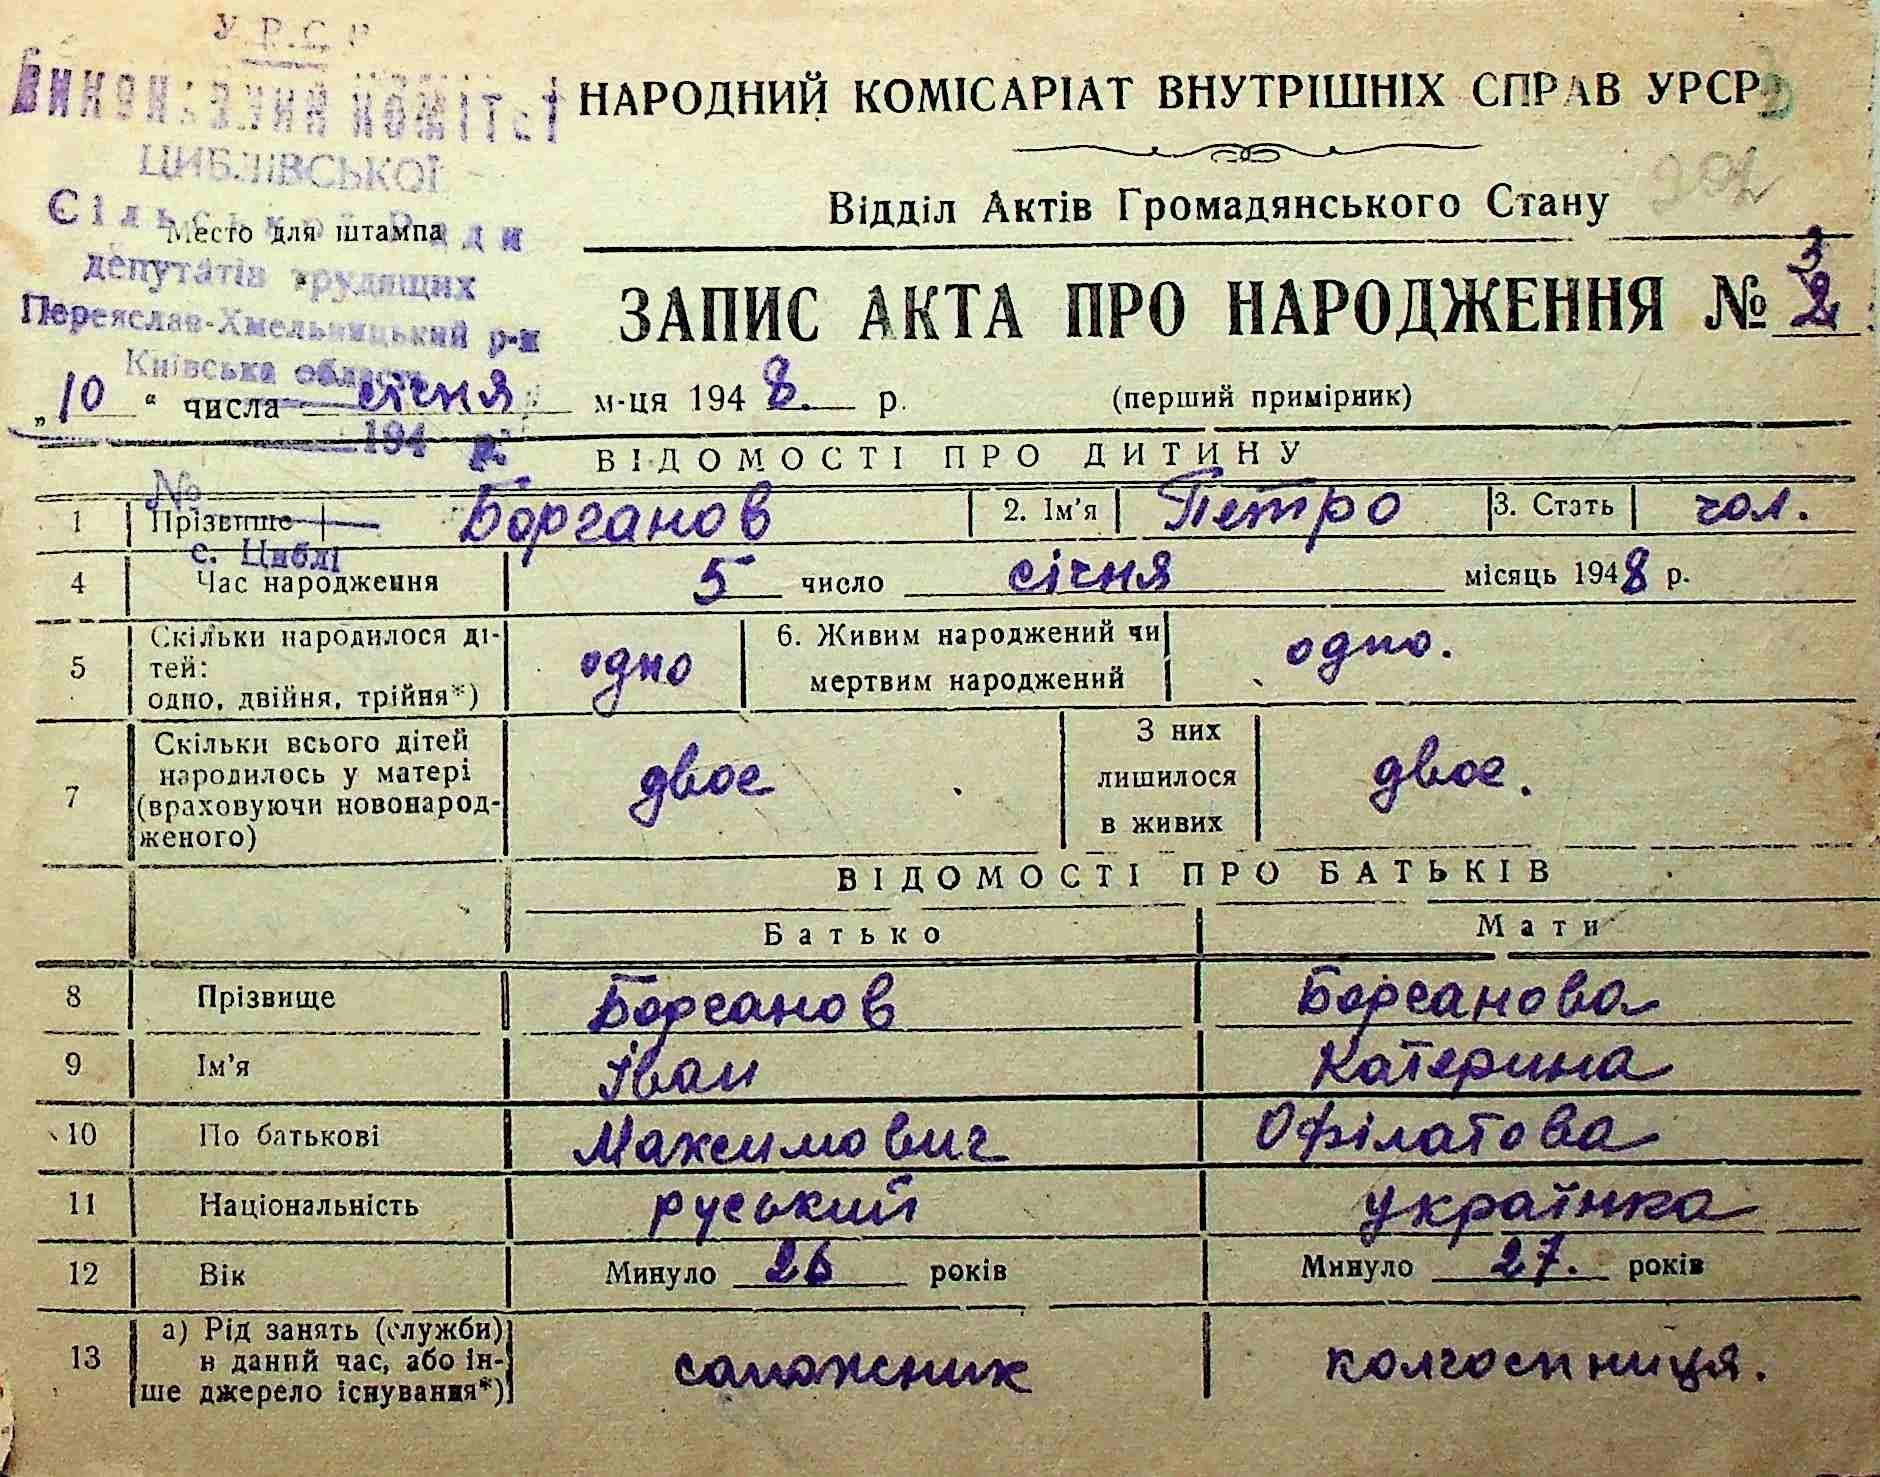 У.Р.С.Р
Виконавчий комітет
ЦИБЛІВСЬКОЇ
Сільської Ради
депутатів трудящих
Переяслав-Хмельницький р-н
Київська області
194 р.
№
с. Циблі
НАРОДНИЙ КОМІСАРІАТ ВНУТРІШНІХ СПРАВ УРСР
202
Відділ Актів Громадянського Стану
Место для штампа
ЗАПИС АКТА ПРО НАРОДЖЕННЯ № 2
3
„10“ числа січня м-ця 1948. р. (перший примірник)
ВІДОМОСТІ ПРО ДИТИНУ
1 Прізвище Борганов 2. Ім'я Петро 3. Стать чол.
4 Час народження 5 число січня місяць 1948 р.
5 Скільки народилося ді-
тей:
одно, двійня, трійня*) одно 6. Живим народжений чи
мертвим народжений одно.
7 Скільки всього дітей
народилось у матері
(враховуючи новонарод-
женого) двоє З них
лишилося
в живих двоє.
ВІДОМОСТІ ПРО БАТЬКІВ
Батько Мати
8 Прізвище Борганов Борганова
9 Ім'я Іван Катерина
10 По батькові Максимович Офілатова
11 Національність руський українка
12 Вік Минуло 26 років Минуло 27. років
13 а) Рід занять (служби)
в даний час, або ін-
ше джерело існування*) сапожник колгоспниця.